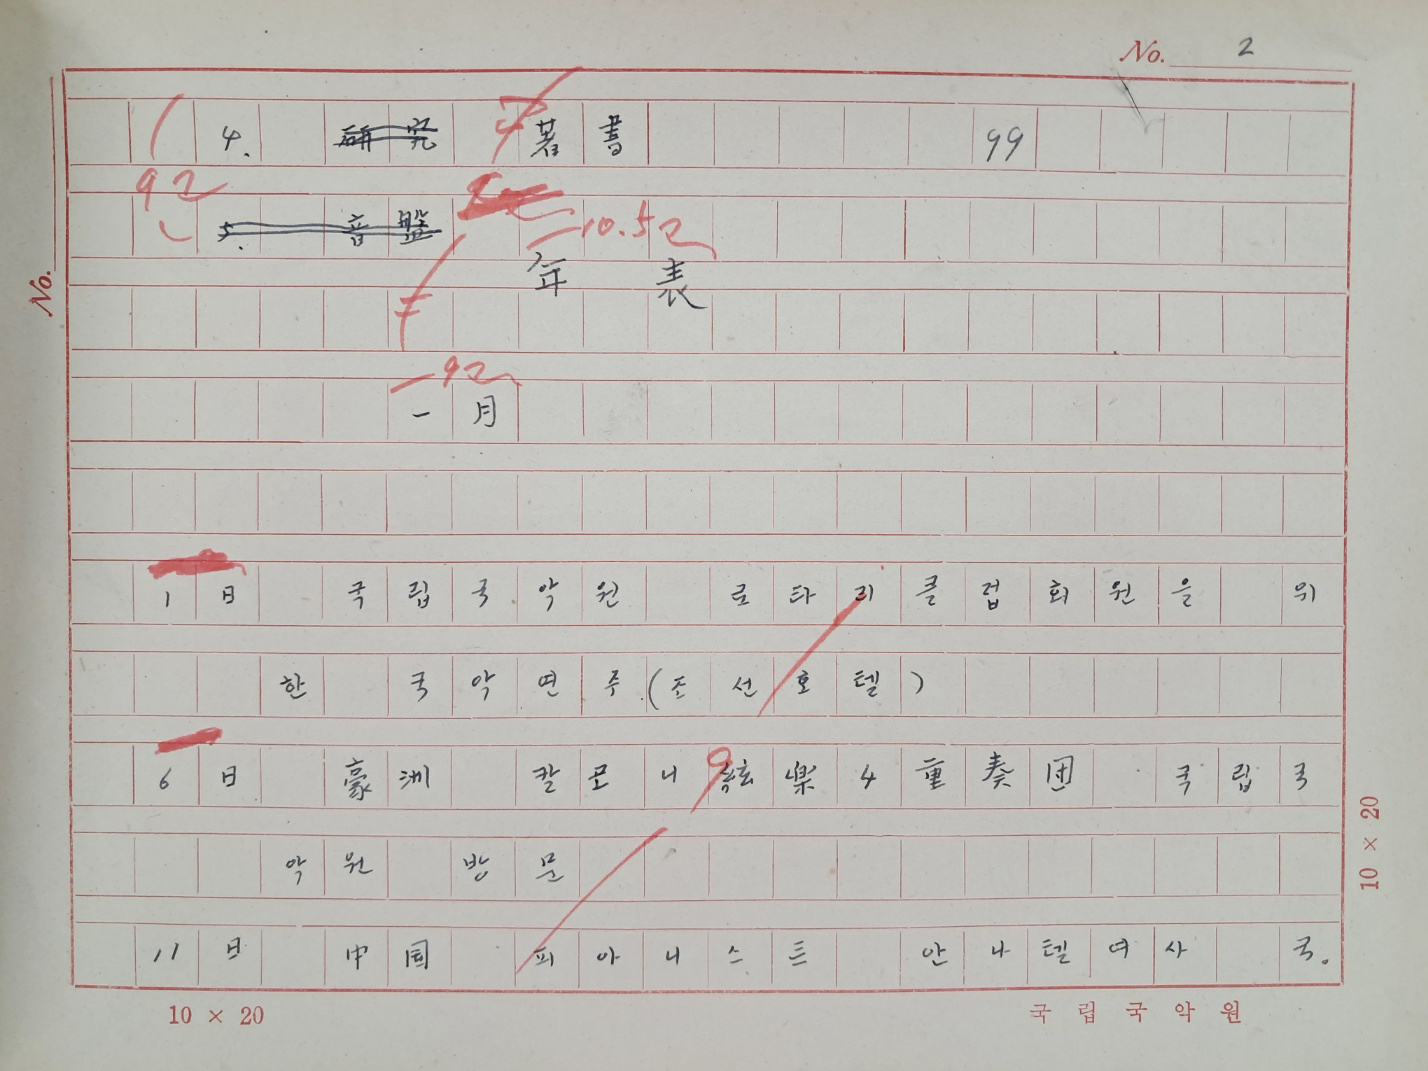 No. 2
4. 研究 著書 99
92
5. 音盤
10.52
年 表
92
一月
No.
1日 국립국악원 로타리클럽회원을 위
한 국악연주(조선호텔)
6日 豪洲 칼로니絃楽4重奏団 국립국
악원 방문
11日 中国 피아니스트 안나텔여사 국.
10 × 20
10 × 20
국립국악원